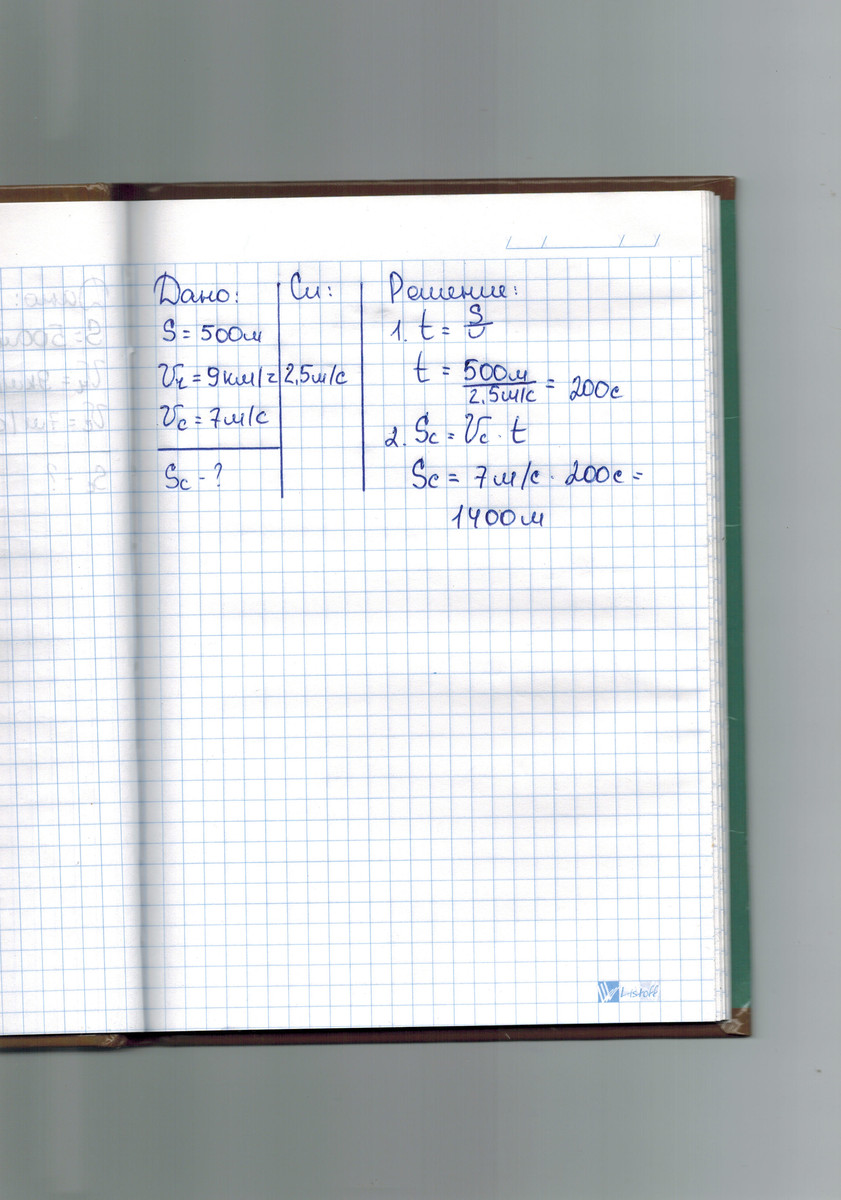 Дано:
S = 500м
Vч = 9км/ч
Vс = 7м/с
Sс - ?
Си:
2,5м/с
Решение:
1. t = S/υ
t = 500м/2,5м/с = 200с
2. Sс = Vс · t
Sс = 7м/с · 200с =
1400м
Listoff